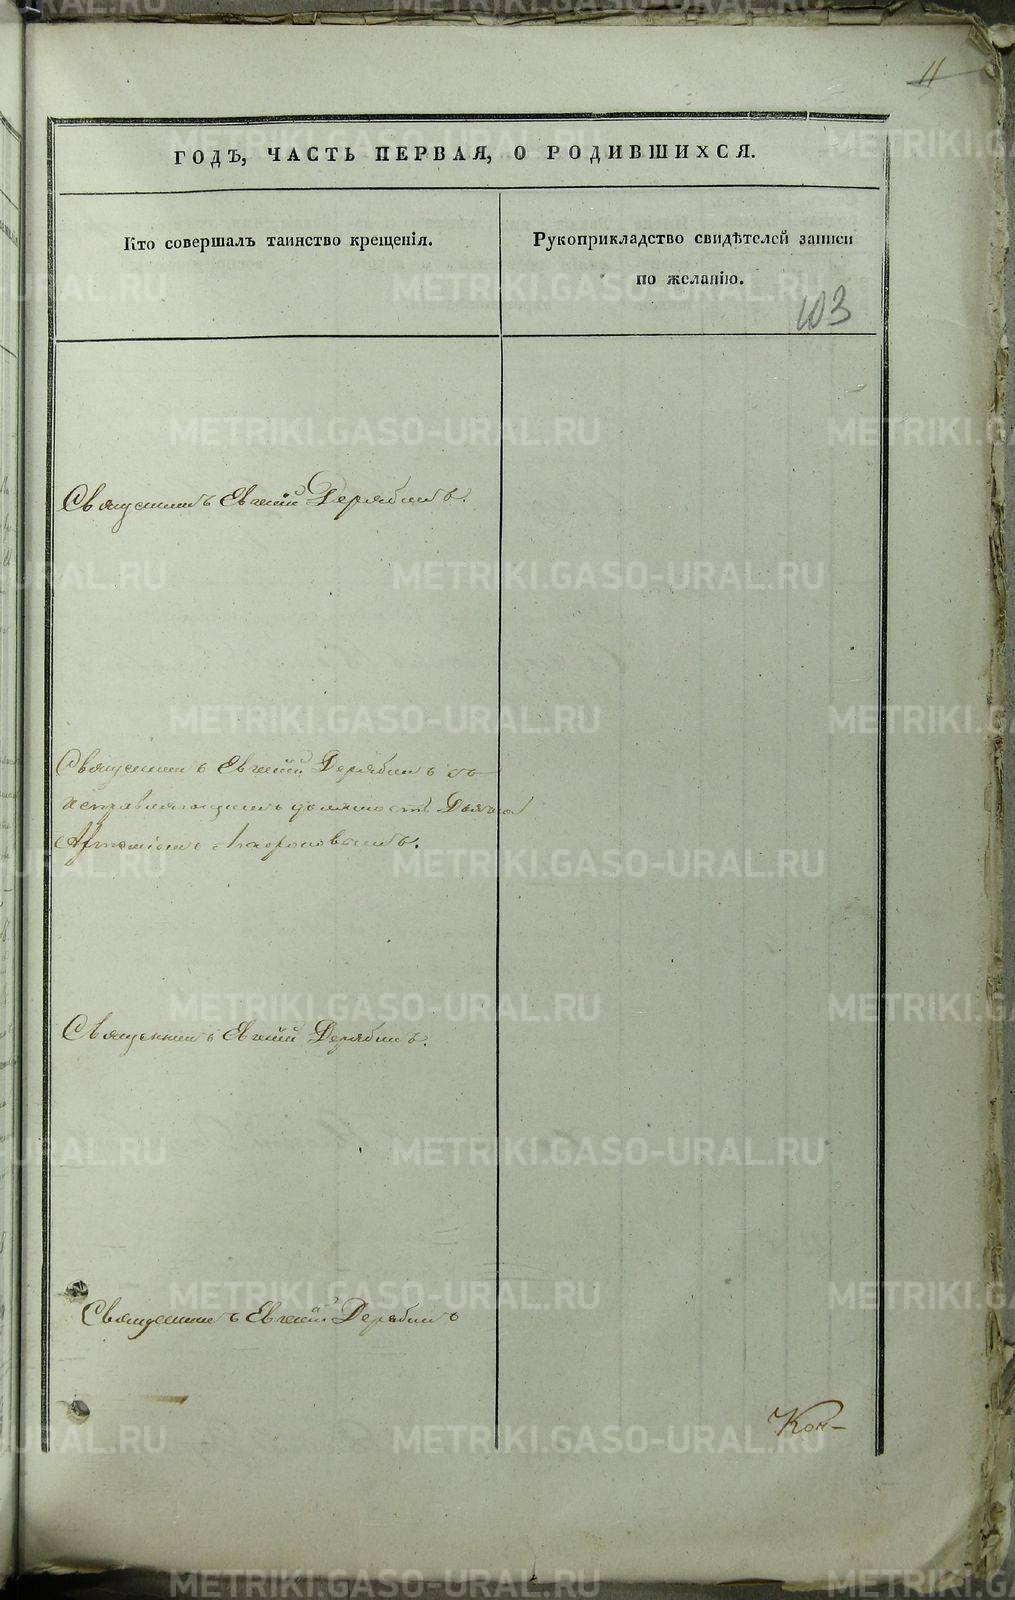 11
ГОДЪ, ЧАСТЬ ПЕРВАЯ, О РОДИВШИХСЯ.
Кто совершалъ таинство крещенія.
Рукоприкладство свидѣтелей записи
по желанію.
103
Священникъ Евгеній Дерябинъ.
Священникъ Евгеній Дерябинъ съ
исправляющимъ должность Дьячка
Священникъ Евгеній Дерябинъ.
Священникъ Евгеній Дерябинъ
Кон-
METRIKI.GASO-URAL.RU